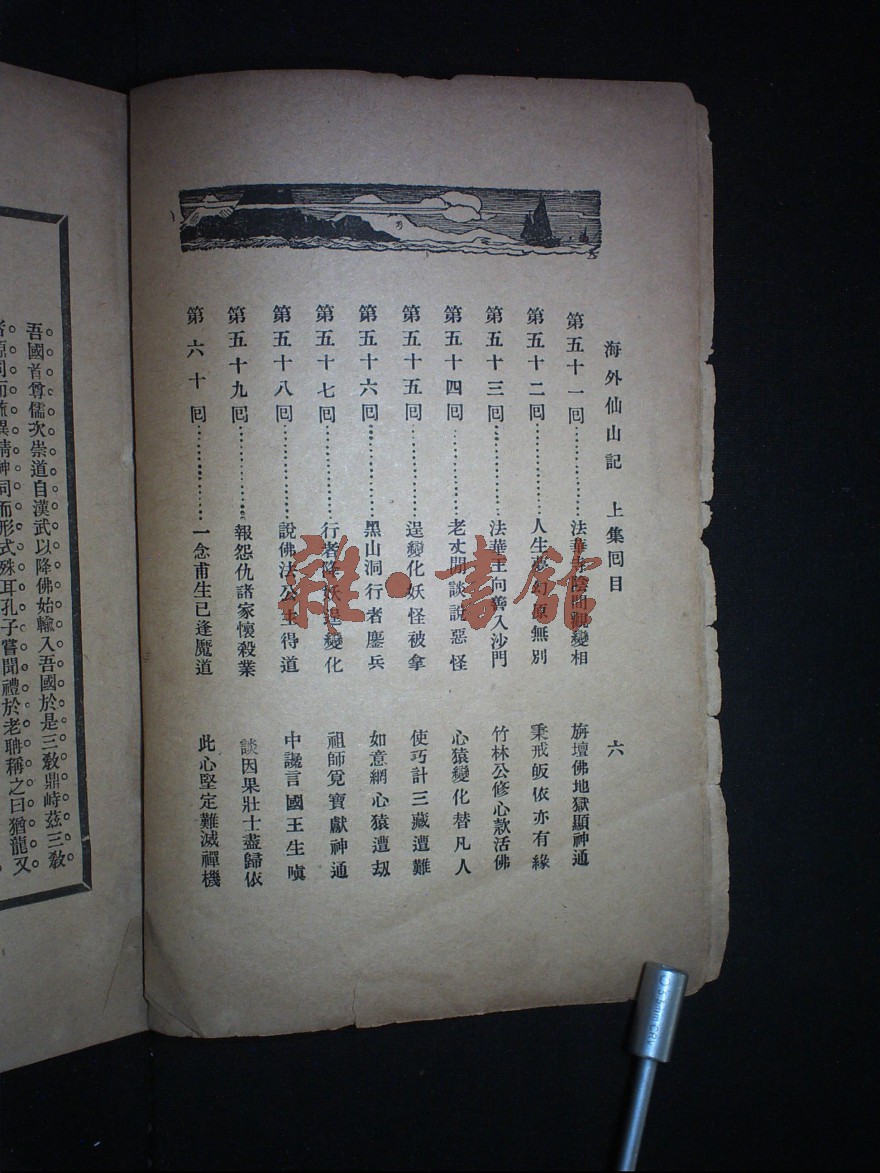 海外仙山記　上集囘目　六
第五十一囘…………法華寺陰間觀變相　旃壇佛地獄顯神通
第五十二囘…………人生夢幻原無別　秉戒皈依亦有緣
第五十三囘…………法華王向善入沙門　竹林公修心款活佛
第五十四囘…………老丈閒談說惡怪　心猿變化替凡人
第五十五囘…………逞變化妖怪被拿　使巧計三藏遭難
第五十六囘…………黑山洞行者鏖兵　如意網心猿遭劫
第五十七囘…………行者降妖逞變化　祖師覓寶獻神通
第五十八囘…………說佛法公主得道　中讒言國王生嗔
第五十九囘…………報怨仇諸家懷殺業　談因果壯士盡歸依
第六十囘…………一念甫生已逢魔道　此心堅定難滅禪機
吾國首尊儒次崇道自漢武以降佛始輸入吾國於是三教鼎峙茲三教
源同而流異精神同而形式殊耳孔子嘗聞禮於老聃稱之曰猶龍又
雜·書館